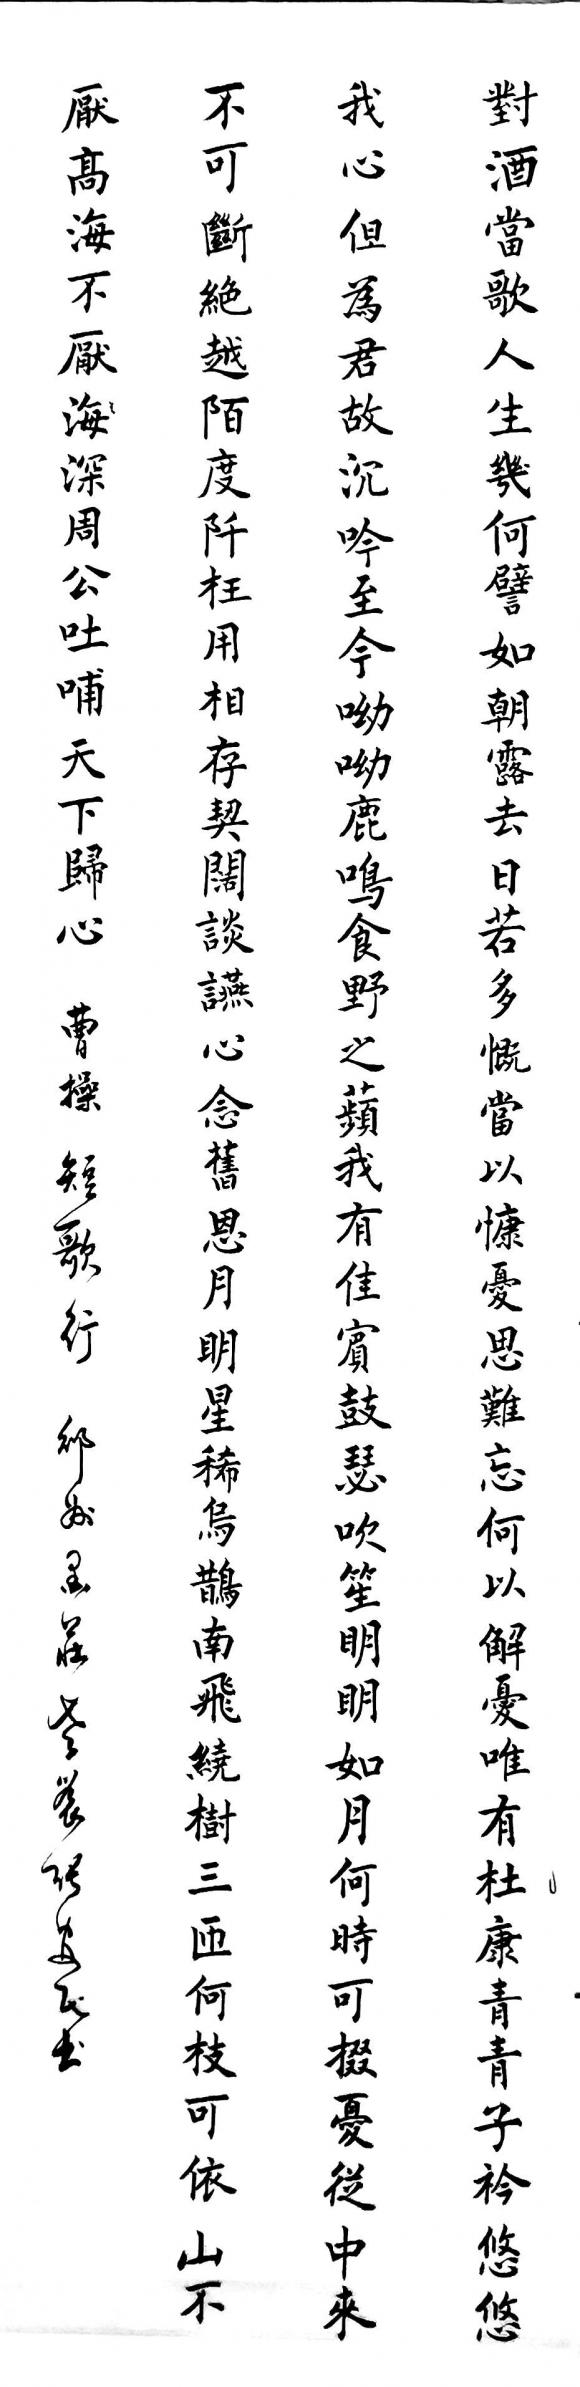 對酒當歌人生幾何譬如朝露去日若多慨當以慷憂思難忘何以解憂唯有杜康青青子衿悠悠
我心但為君故沉吟至今呦呦鹿鳴食野之蘋我有佳賓鼓瑟吹笙明明如月何時可掇憂從中來
不可斷絶越陌度阡枉用相存契闊談讌心念舊恩月明星稀烏鵲南飛繞樹三匝何枝可依山不
厭高海不厭海深周公吐哺天下歸心 曹操 短歌行 莊 書